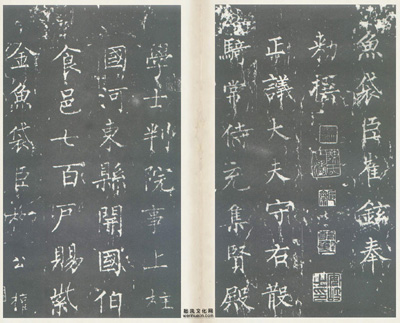 魚袋臣崔鉉奉
勅撰
正議大夫守右散
騎常侍充集賢殿
學士判院事上柱
國河東縣開國伯
食邑七百戶賜紫
金魚袋臣柳公權